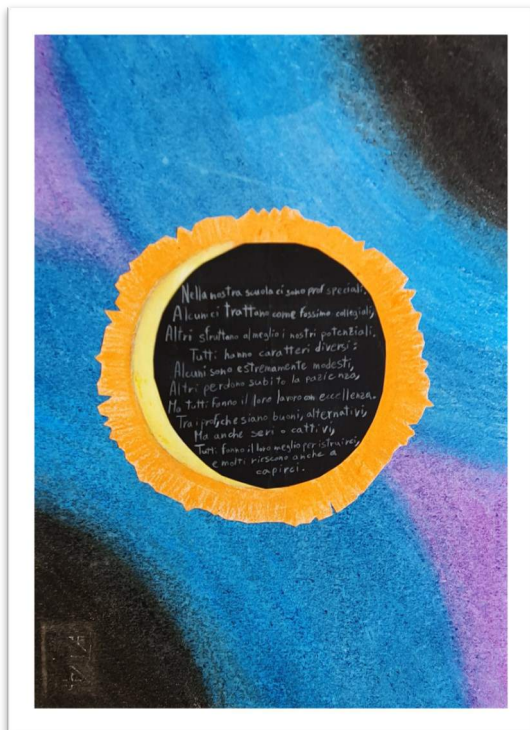 Nella nostra scuola ci sono prof speciali,
Alcuni ci trattano come fossimo collegiali,
Altri sfruttano al meglio i nostri potenziali.
Tutti hanno caratteri diversi:
Alcuni sono estremamente modesti,
Altri perdono subito la pazienza,
Ma tutti fanno il loro lavoro con eccellenza.
Tra i prof, che siano buoni, alternativi,
Ma anche seri o cattivi,
Tutti fanno il loro meglio per istruirci,
e molti riescono anche a
capirci.